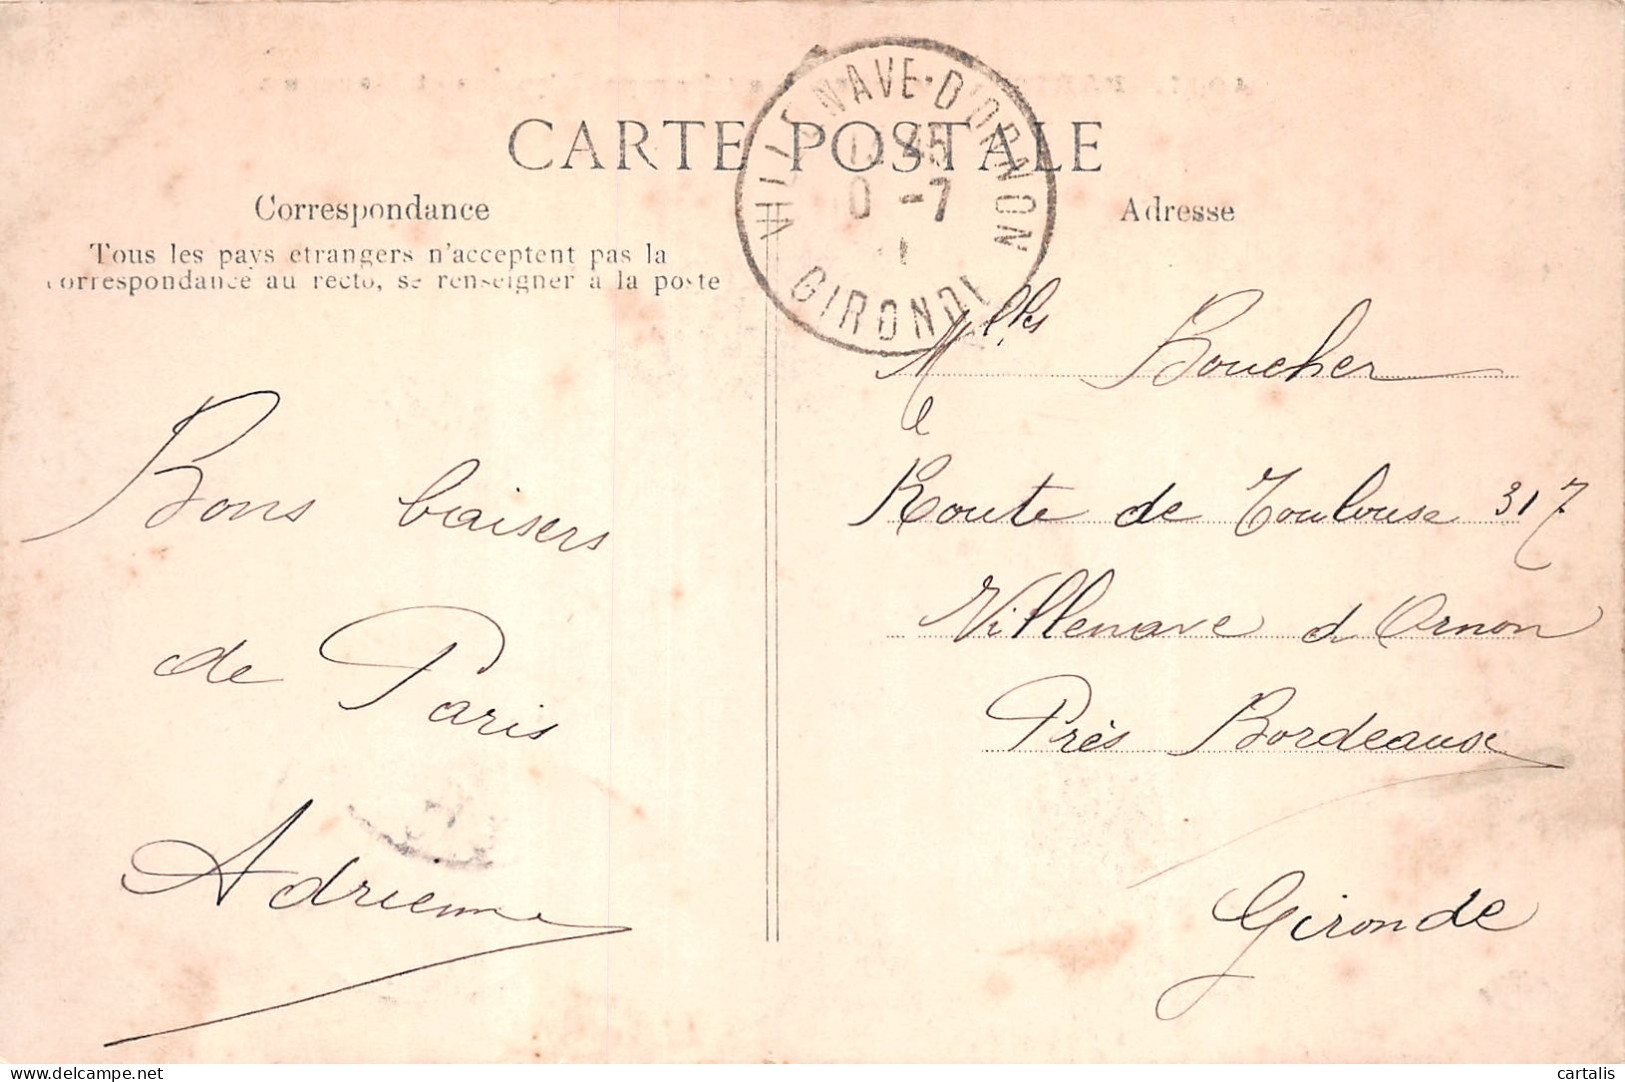 CARTE POSTALE
Correspondance
Tous les pays etrangers n'acceptent pas la
correspondance au recto, se renseigner a la poste
Bons baisers
de Paris
Adrienne
VILLENAVE-D'ORNON
0 -7
GIRONDE
Adresse
Mlles Boucher
Route de Toulouse 317
Villenave d Ornon
Près Bordeaux
Gironde
cartalis